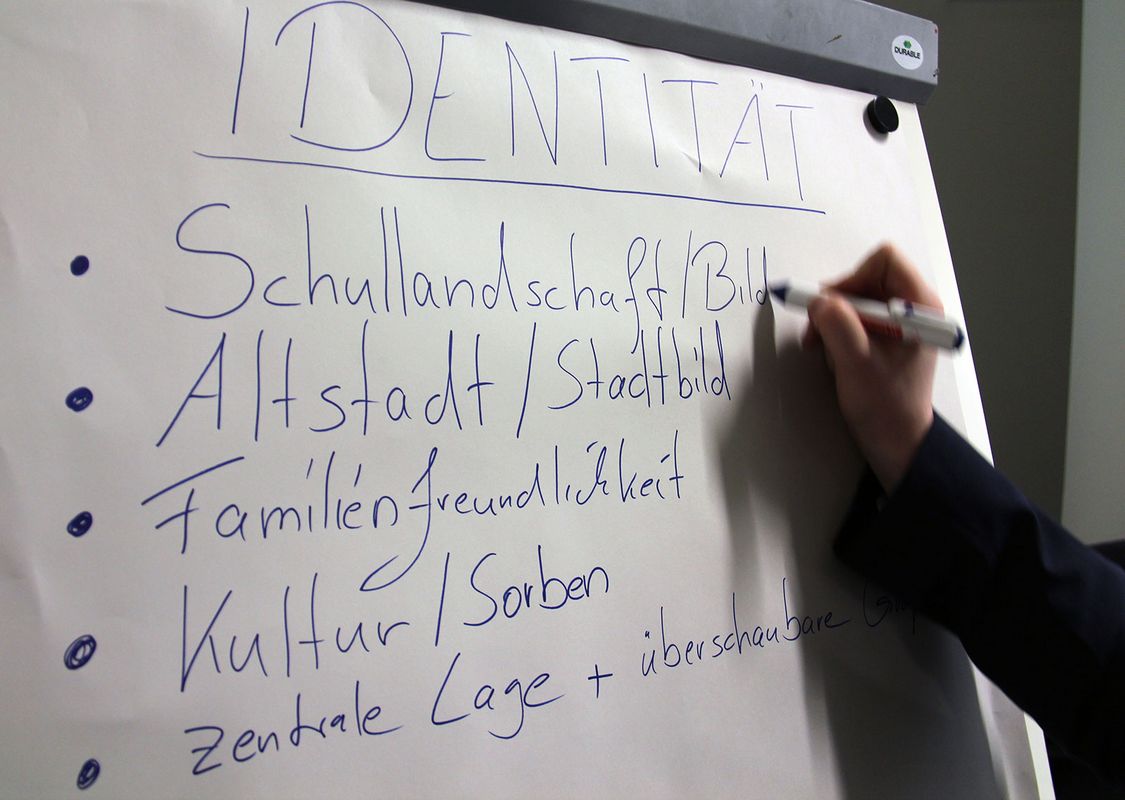 DURABLE
IDENTITÄT
Schullandschaft/Bild
Altstadt/Stadtbild
Familienfreundlichkeit
Kultur/Sorben
zentrale Lage + überschaubare